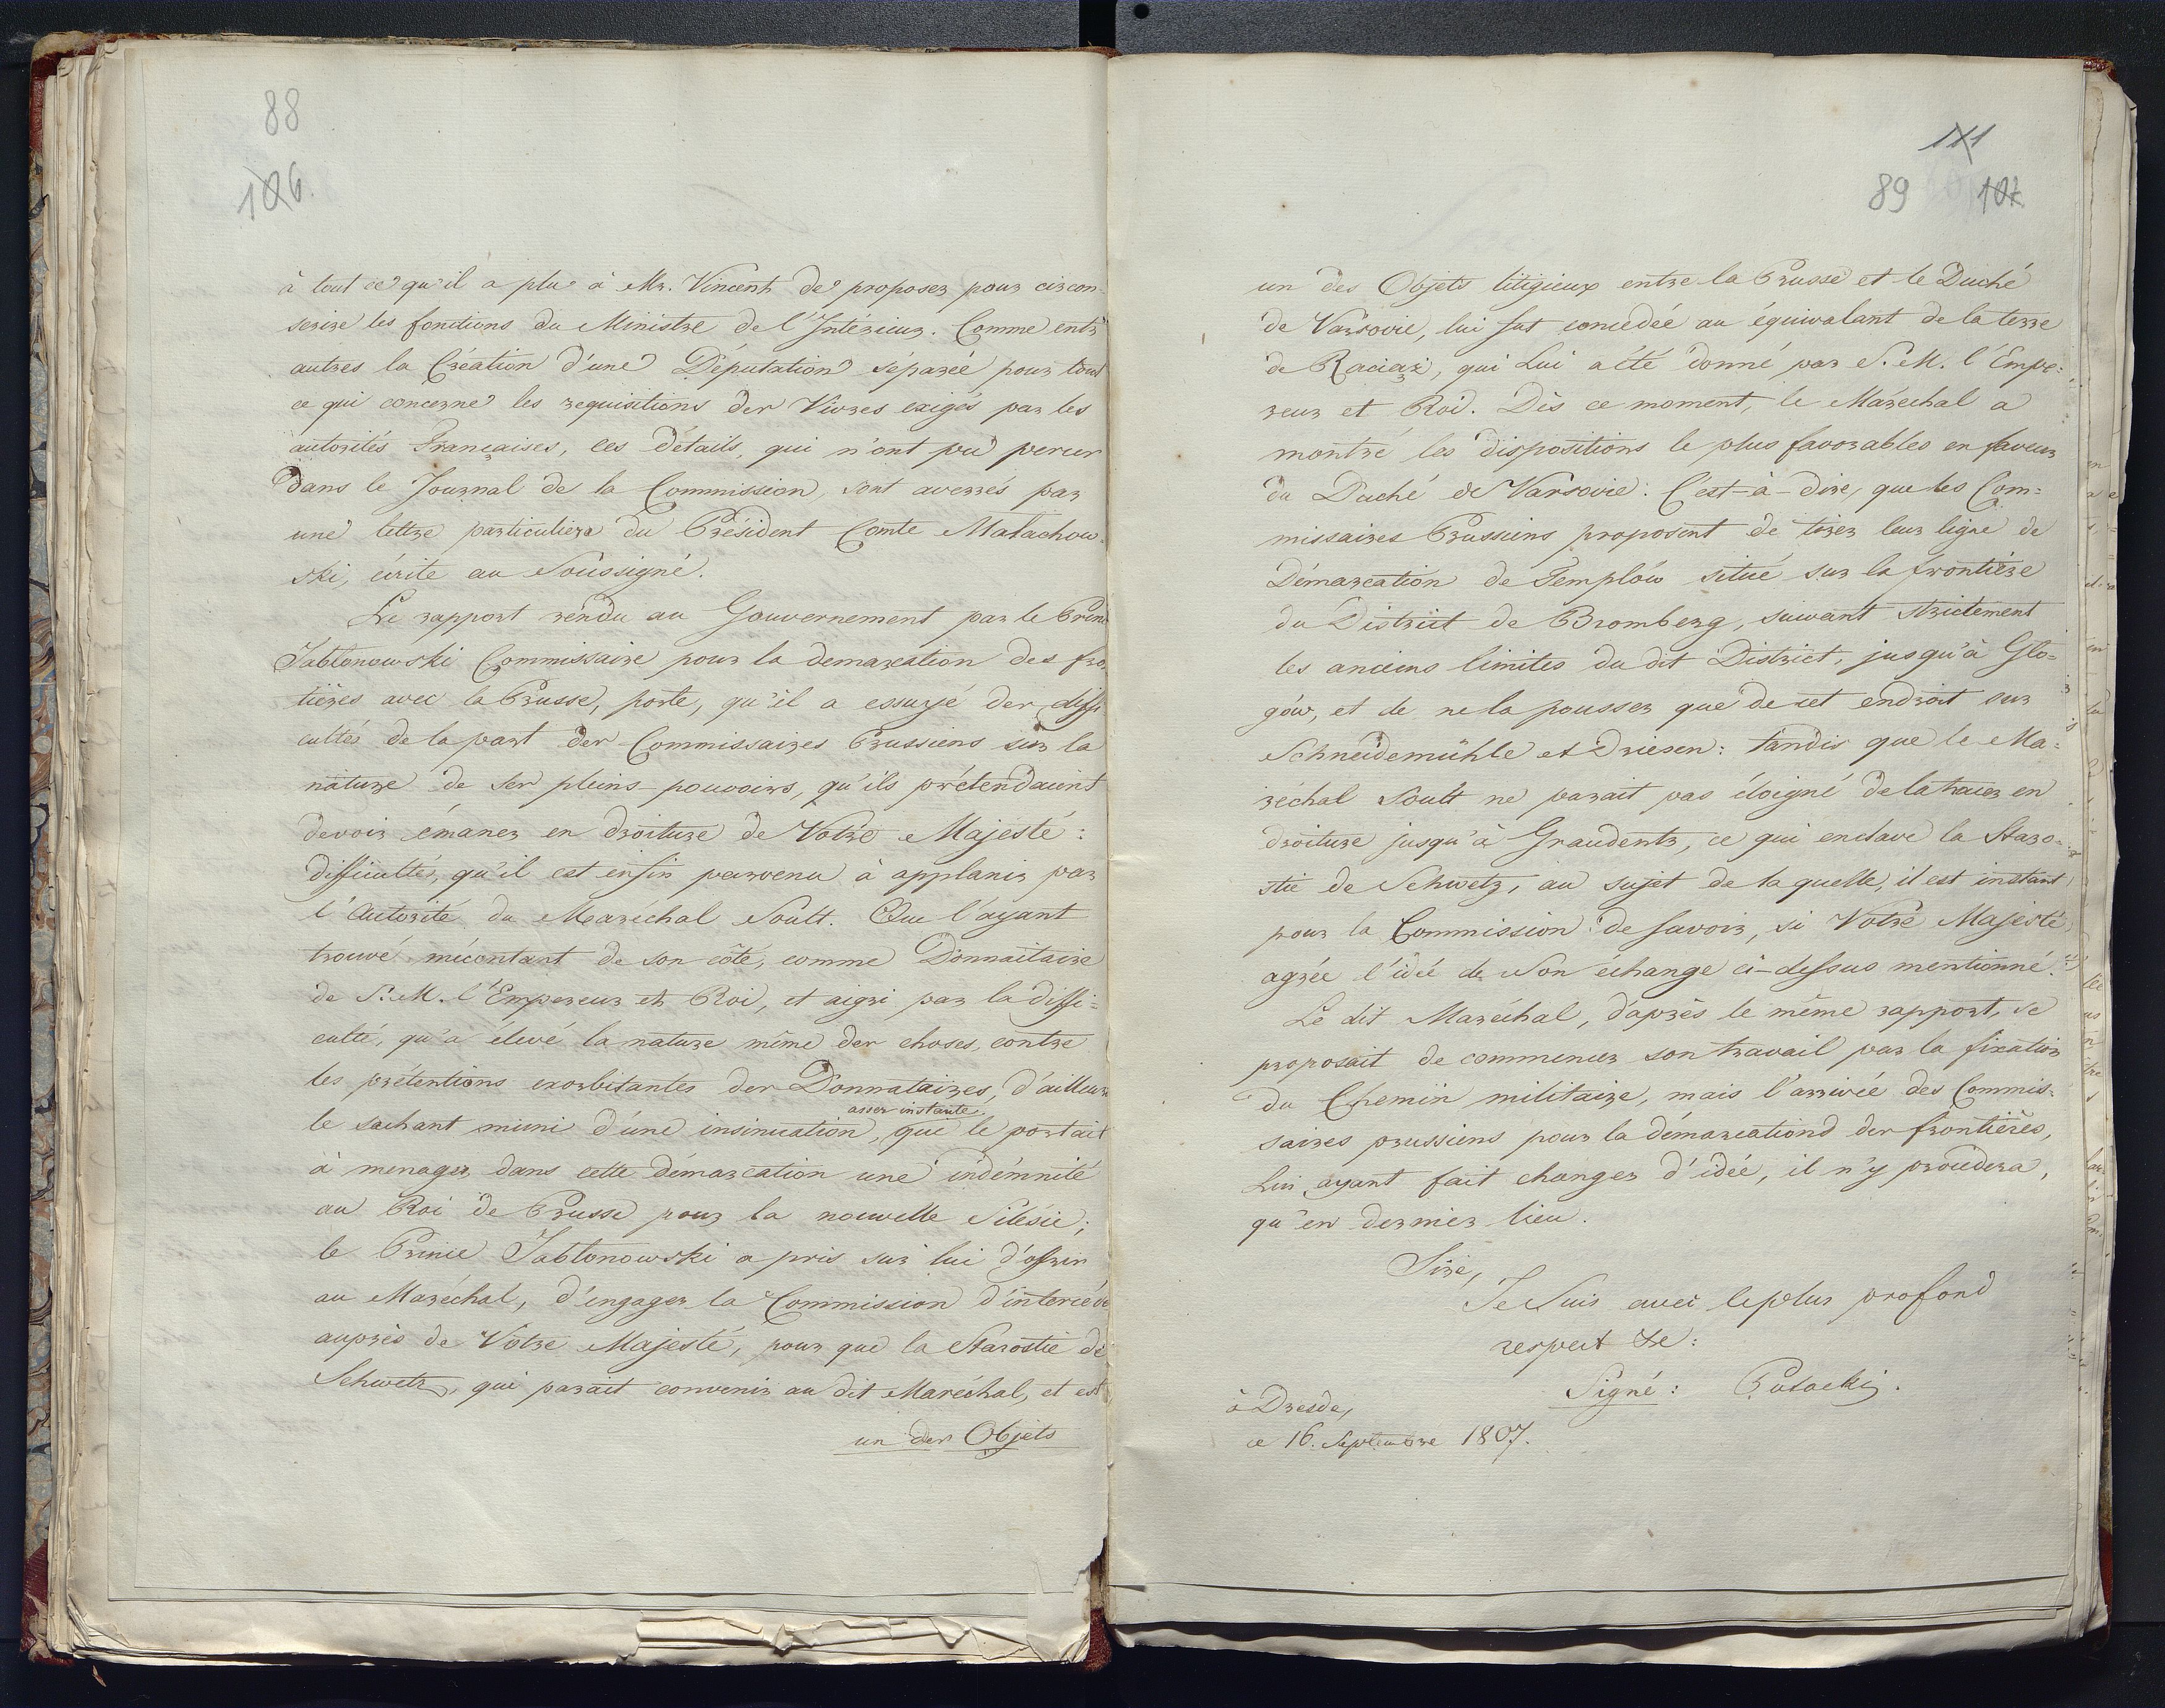 88
106.
à tout ce qu'il a plu à Mr. Vincent de proposer pour circon-
scrire les fonctions du Ministre de l'Intérieur. Comme entr'
autres la Création d'une Députation séparée pour tout
ce qui concerne les requisitions der Vivres exigés par les
autorités Françaises, ces détails, qui n'ont pu percer
dans le Journal de la Commission, sont averrés par
une lettre particuliere du Président Comte Malachow-
ski, écrite au Soussigné.
Le rapport rendu au Gouvernement par le Prin
Jablonowski Commissaire pour la demarcation des fro
tières avec la Prusse, porte, qu'il a essuyé der diffi
cultés de la part der Commissaires Prussiens sur la
nature de ser pleins-pouvoirs, qu'ils prétendaient
devoir émaner en droiture de Votre Majesté:
difficulté, qu'il est enfin parvenu à applanir par
l'Autorité du Maréchal Soult. Que l'ayant
trouvé mécontant de son côté, comme Donnaitaire
de S. M. l'Empereur et Roi, et aigri par la diffi=
culté, qu'a élevé la nature même der choses, contre
les prétentions exorbitantes der Donnataires, d'ailleurs
assez instante
le sachant muni d'une insinuation, que le portait
à menager dans cette démarcation une indémnité
au Roi de Prusse pour la nouvelle Silésie;
le Prince Jablonowski a pris sur lui d'offrir
au Maréchal, d'engager la Commission d'intercéde
auprès de Votre Majesté, pour que la Starostie de
Schwetz, qui parait convenir au dit Maréchal, et est
un der Objets
111
89 107.
un des Objets litigieux entre la Prusse et le Duché
de Varsovie, lui fut concédée au équivalant de la terre
de Raciąż, qui Lui a été donné par S. M. l'Empe=
reur et Roi. Dès ce moment, le Maréchal a
montré les dispositions le plus favorables en faveur
du Duché de Varsovie: C'est-à-dire, que les Com=
missaires Prussiens proposent de tirer leur ligne de
Démarcation de Templów situé sur la frontière
du District de Bromberg, suivant strictement
les anciens limites du dit District, jusqu'à Glo=
gów, et de ne la pousser que de cet endroit sur
Schneidemühle et Driesen: tandis que le Ma=
réchal Soult ne parait pas éloigné de la tracer en
droiture jusqu'à Graudentz, ce qui enclave la Staro=
stie de Schwetz, au sujet de la quelle, il est instant
pour la Commission de savoir, si Votre Majesté
agrée l'idée de Son échange ci-dessus mentionné.
Le dit Maréchal, d'après le même rapport, se
proposait de commencer son travail par la fixation
du Chemin militaire, mais l'arrivée des Commis=
saires prussiens pour la démarcationd der frontières,
Lui ayant fait changer d'idée, il n'y procédera,
qu'en dernier lieu.
Sire,
Je Suis avec le plus profond
respect &c:
Signé: Potocki.
à Dresde,
ce 16. Septembre 1807.